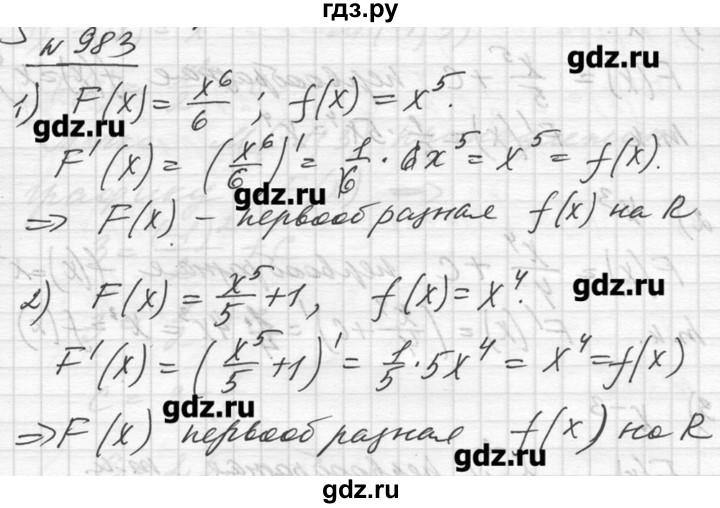 гдз.ру
№ 983
gdz.ru
1) F(x) = x⁶/6 ; f(x) = x⁵.
gdz.ru
F'(x) = (x⁶/6)' = 1/6 · 6x⁵ = x⁵ = f(x).
gdz.ru
⇒ F(x) – первообразная f(x) на R
2) F(x) = x⁵/5 + 1, f(x) = x⁴.
gdz.ru
F'(x) = (x⁵/5 + 1)' = 1/5 · 5x⁴ = x⁴ = f(x)
gdz.ru
⇒ F(x) первообразная f(x) на R
gdz.ru
gdz.ru